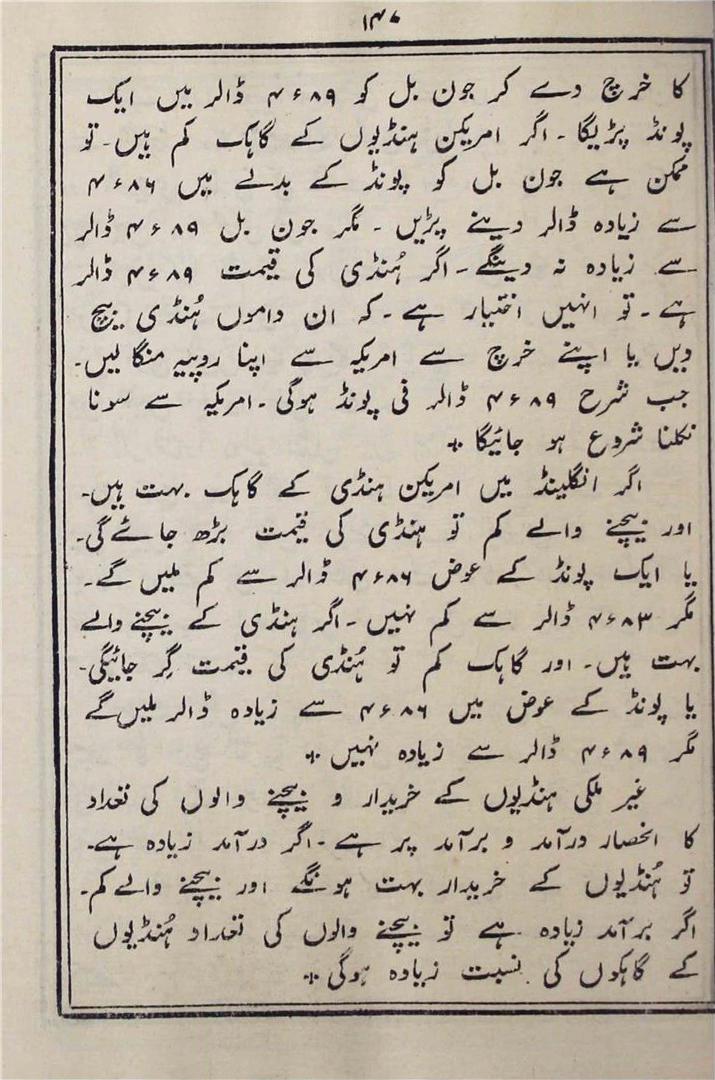 ۱۴۷
کا خرچ دے کر جون بل کو ۴ء۸۹ ڈالر میں ایک
پونڈ پڑیگا ۔ اگر امریکن ہنڈیوں کے گاہک کم ہیں۔ تو
ممکن ہے جون بل کو پونڈ کے بدلے میں ۴ء۸۶
سے زیادہ ڈالر دینے پڑیں ۔ مگر جون بل ۴ء۸۹ ڈالر
سے زیادہ نہ دینگے ۔ اگر ہُنڈی کی قیمت ۴ء۸۹ ڈالر
ہے ۔ تو انہیں اختیار ہے ۔ کہ ان داموں ہُنڈی بیچ
دیں یا اپنے خرچ سے امریکہ سے اپنا روپیہ منگا لیں۔
جب شرح ۴ء۸۹ ڈالر فی پونڈ ہوگی ۔ امریکہ سے سونا
نکلنا شروع ہو جائیگا ٭
اگر انگلینڈ میں امریکن ہنڈی کے گاہک بہت ہیں۔
اور بیچنے والے کم تو ہنڈی کی قیمت بڑھ جائے گی۔
یا ایک پونڈ کے عوض ۴ء۸۶ ڈالر سے کم ملیں گے ۔
مگر ۴ء۸۳ ڈالر سے کم نہیں ۔ اگر ہنڈی کے بیچنے والے
بہت ہیں۔ اور گاہک کم تو ہُنڈی کی قیمت گِر جائیگی۔
یا پونڈ کے عوض میں ۴ء۸۶ سے زیادہ ڈالر ملیں گے
مگر ۴ء۸۹ ڈالر سے زیادہ نہیں ٭
غیر ملکی ہنڈیوں کے خریدار و بیچنے والوں کی تعداد
کا انحصار درآمد و برآمد پر ہے ۔ اگر درآمد زیادہ ہے۔
تو ہُنڈیوں کے خریدار بہت ہونگے اور بیچنے والے کم۔
اگر برآمد زیادہ ہے تو بیچنے والوں کی تعداد ہُنڈیوں
کے گاہکوں کی نسبت زیادہ ہوگی ٭